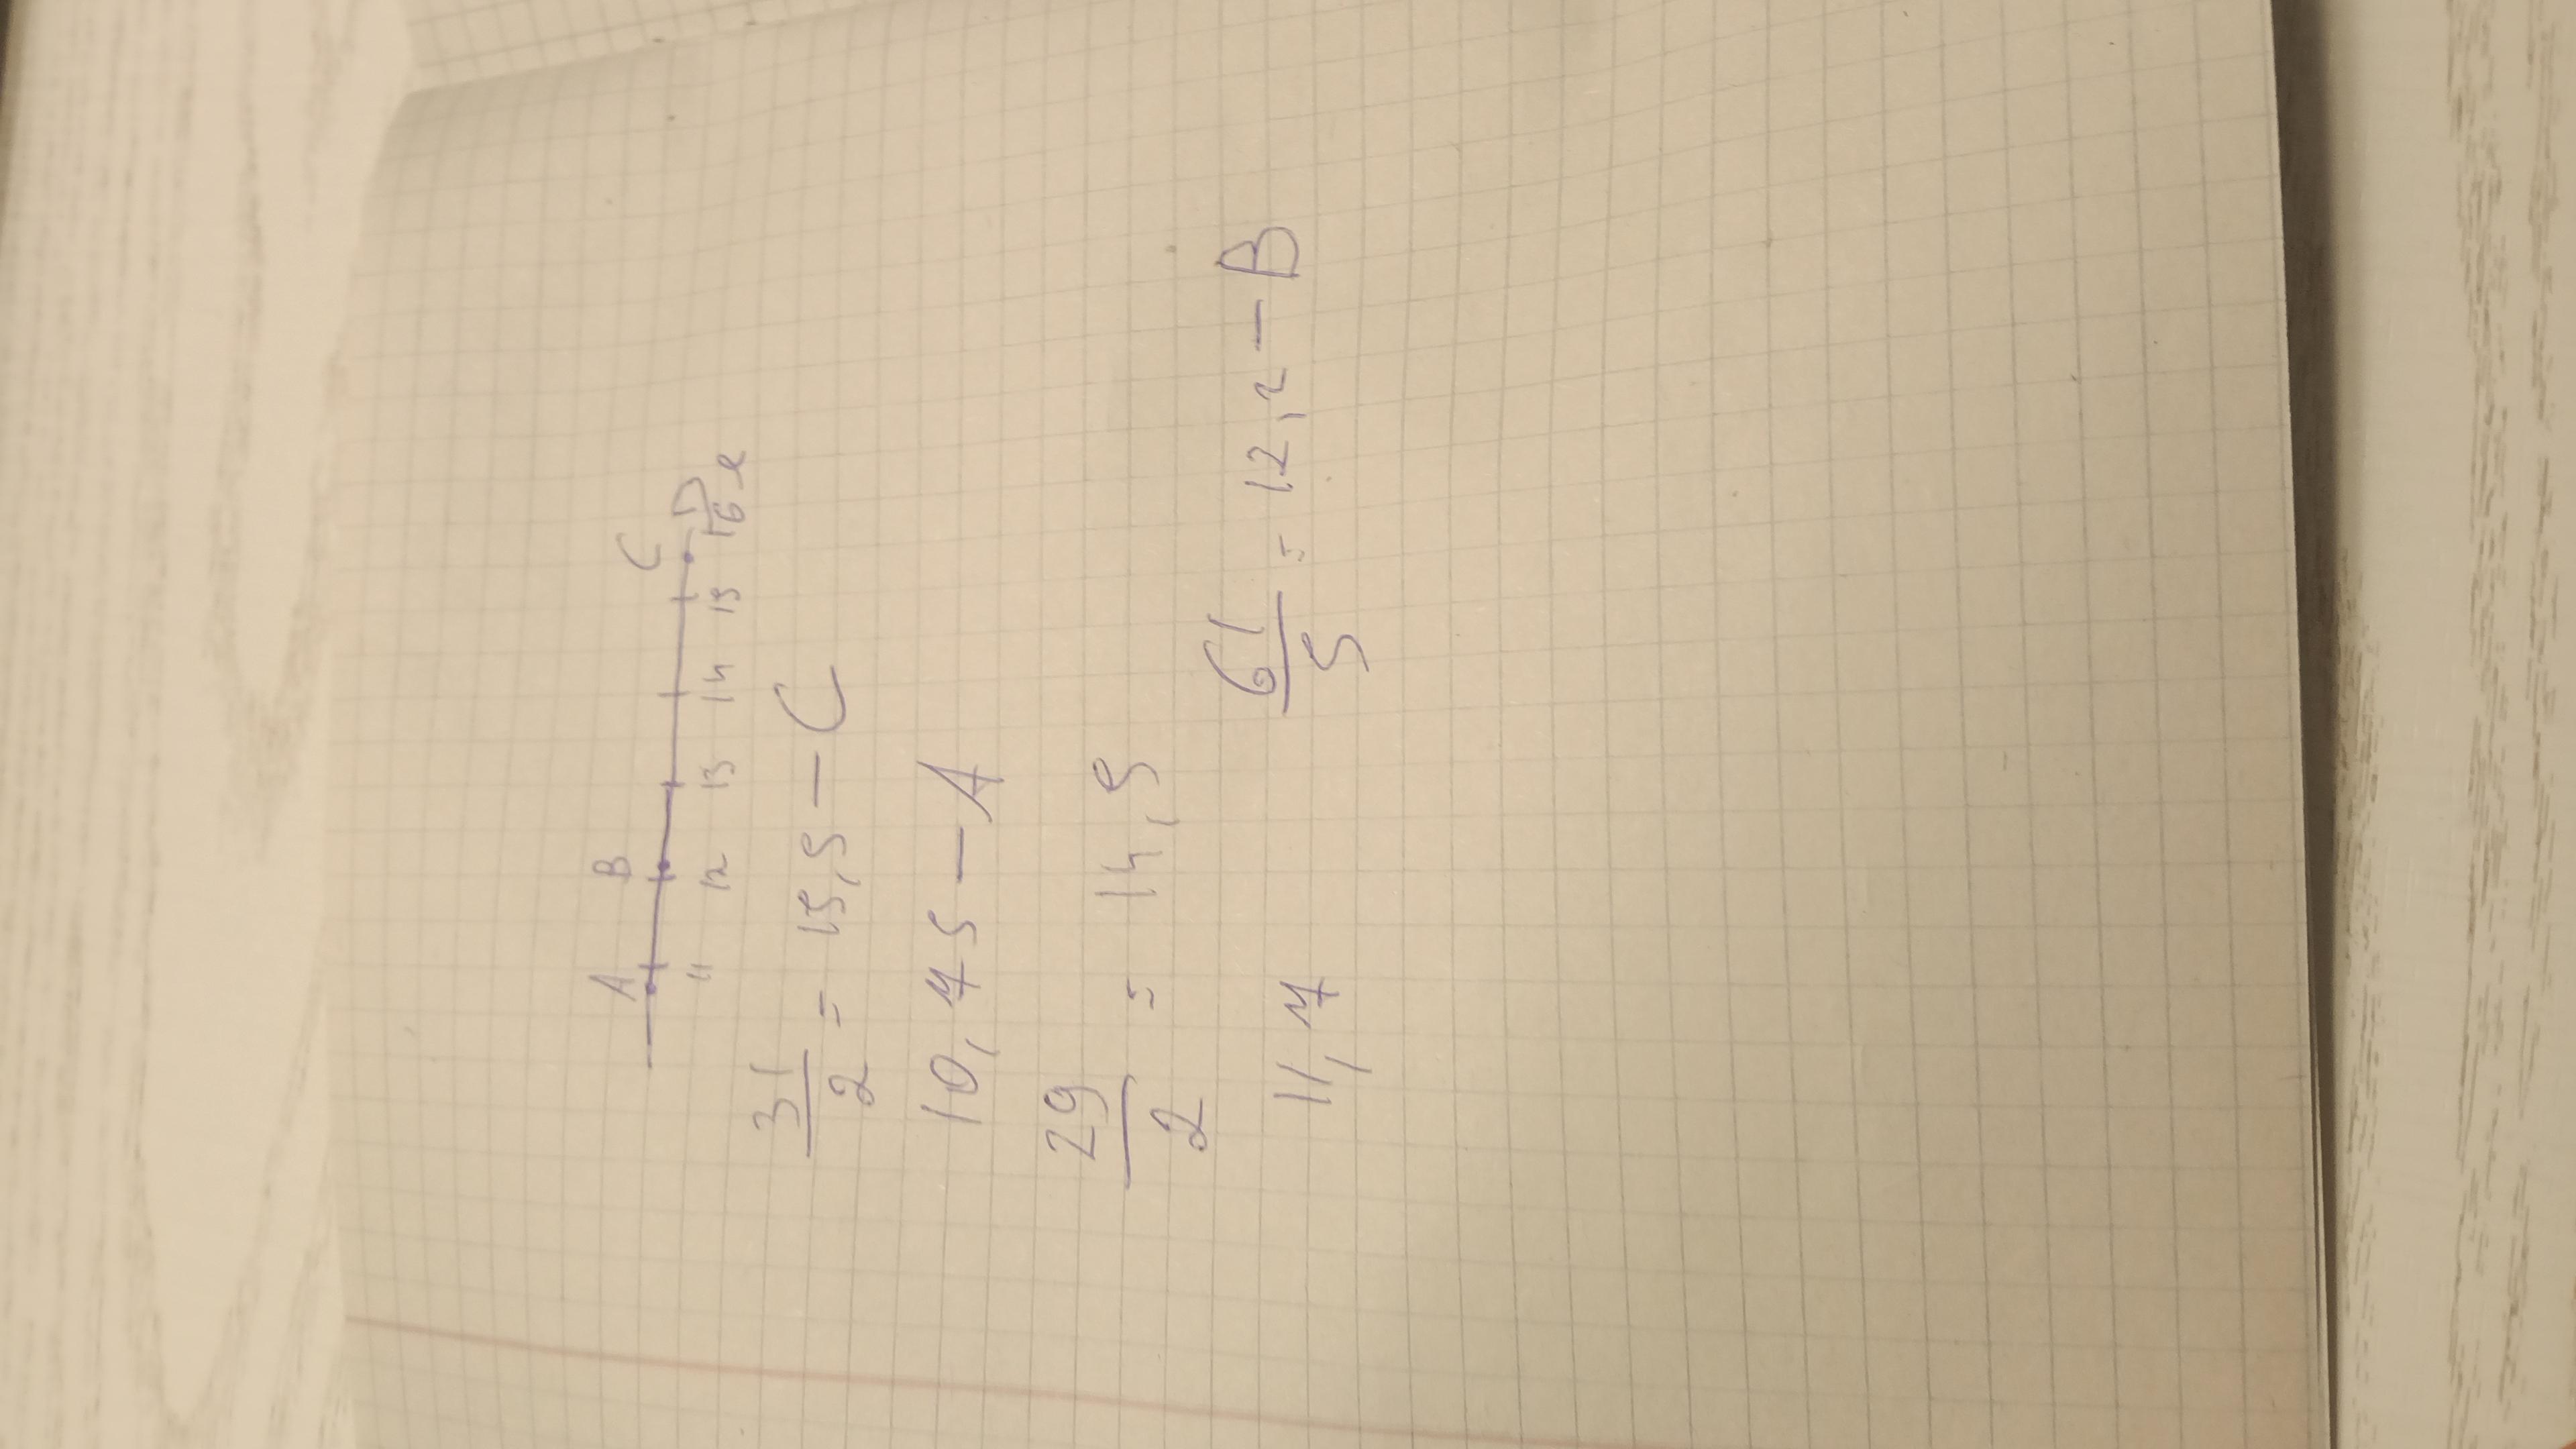 A B C D
11 12 13 14 15 16
31/2 = 15,5 — C
10,75 — A
29/2 = 14,5
11,7 61/5 = 12,2 — B